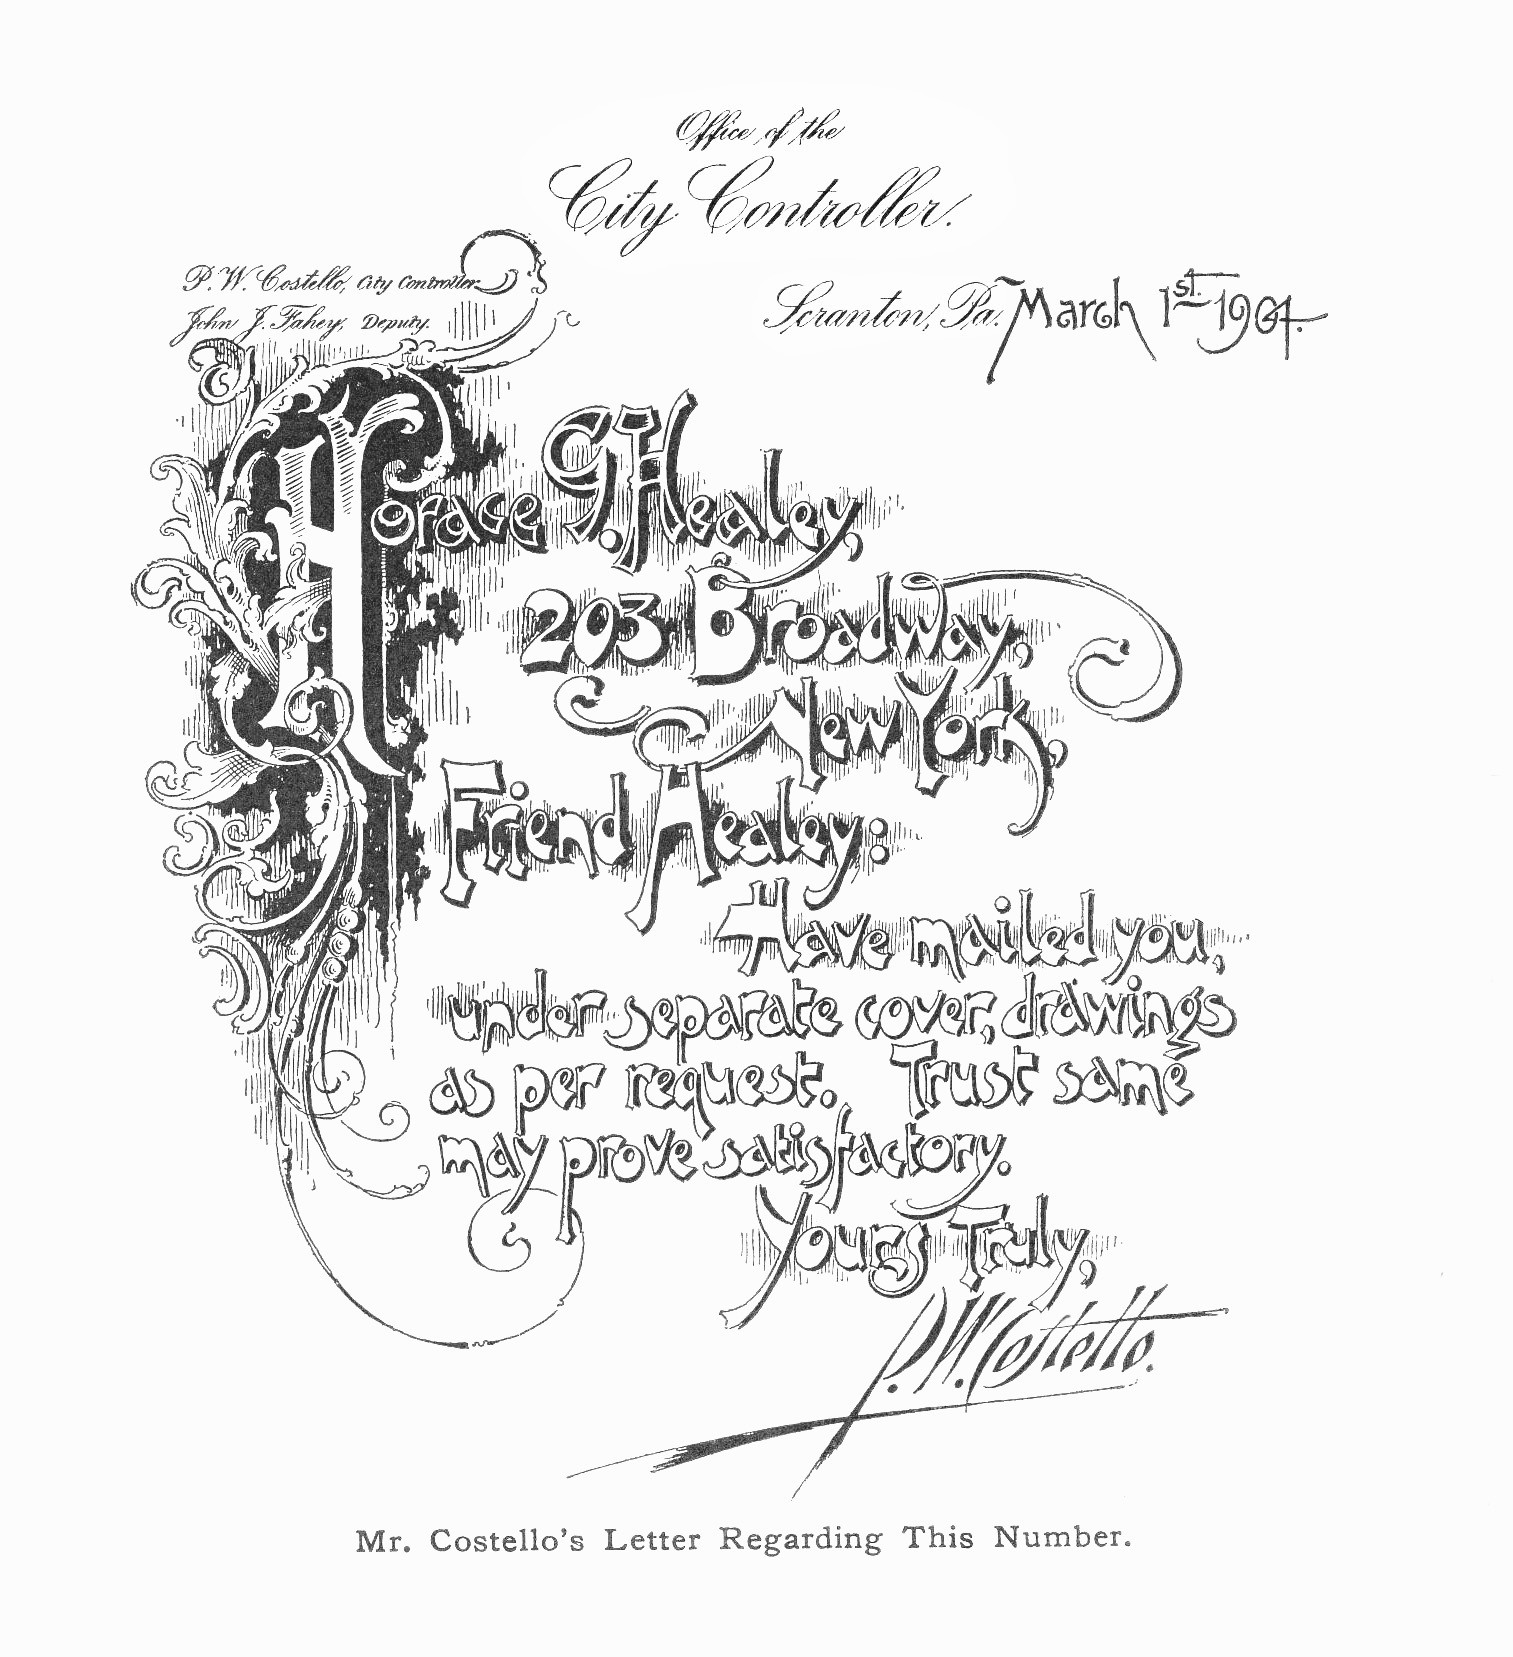 Office of the
City Controller.
P. W. Costello, City Controller.
John J. Fahey, Deputy.
Scranton, Pa. March 1st. 1904.
Horace G. Healey,
203 Broadway,
New York,
Friend Healey:
Have mailed you,
under separate cover, drawings
as per request. Trust same
may prove satisfactory.
Yours Truly,
P. W. Costello.
Mr. Costello's Letter Regarding This Number.